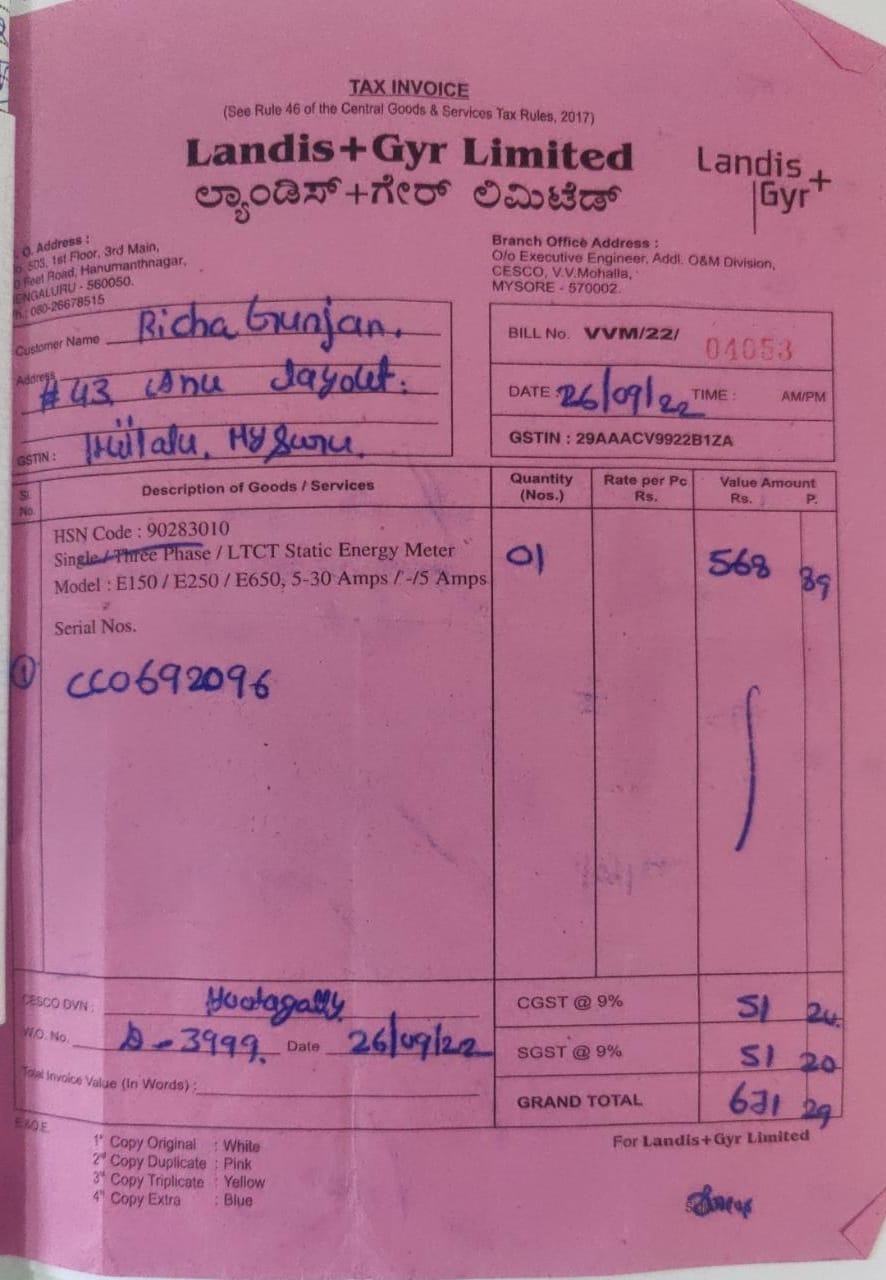 TAX INVOICE
(See Rule 46 of the Central Goods & Services Tax Rules, 2017)
Landis+Gyr Limited
ಲ್ಯಾಂಡಿಸ್+ಗೇರ್ ಲಿಮಿಟೆಡ್
Landis+
Gyr
O. Address :
503, 1st Floor, 3rd Main,
Feet Road, Hanumanthnagar,
ENGALURU - 560050.
080-26678515
Branch Office Address :
O/o Executive Engineer, Addl. O&M Division,
CESCO, V.V.Mohalla,
MYSORE - 570002.
Customer Name Richa Gunjan.
Address #43 Anu Layout.
GSTIN : Mysuru.
BILL No. VVM/22/ 04053
DATE : 26/09/22 TIME : AM/PM
GSTIN : 29AAACV9922B1ZA
Sl. No. Description of Goods / Services Quantity (Nos.) Rate per Pc Rs. Value Amount Rs. P.
HSN Code : 90283010
Single / Three Phase / LTCT Static Energy Meter 01 568 89
Model : E150 / E250 / E650, 5-30 Amps / -/5 Amps
Serial Nos.
① CC0692096
CESCO DVN : Hootagally
W.O. No. D-3999. Date 26/09/22
Total Invoice Value (In Words) :
CGST @ 9% 51 20
SGST @ 9% 51 20
GRAND TOTAL 671 29
E&O.E.
1st Copy Original : White
2nd Copy Duplicate : Pink
3rd Copy Triplicate : Yellow
4th Copy Extra : Blue
For Landis+Gyr Limited